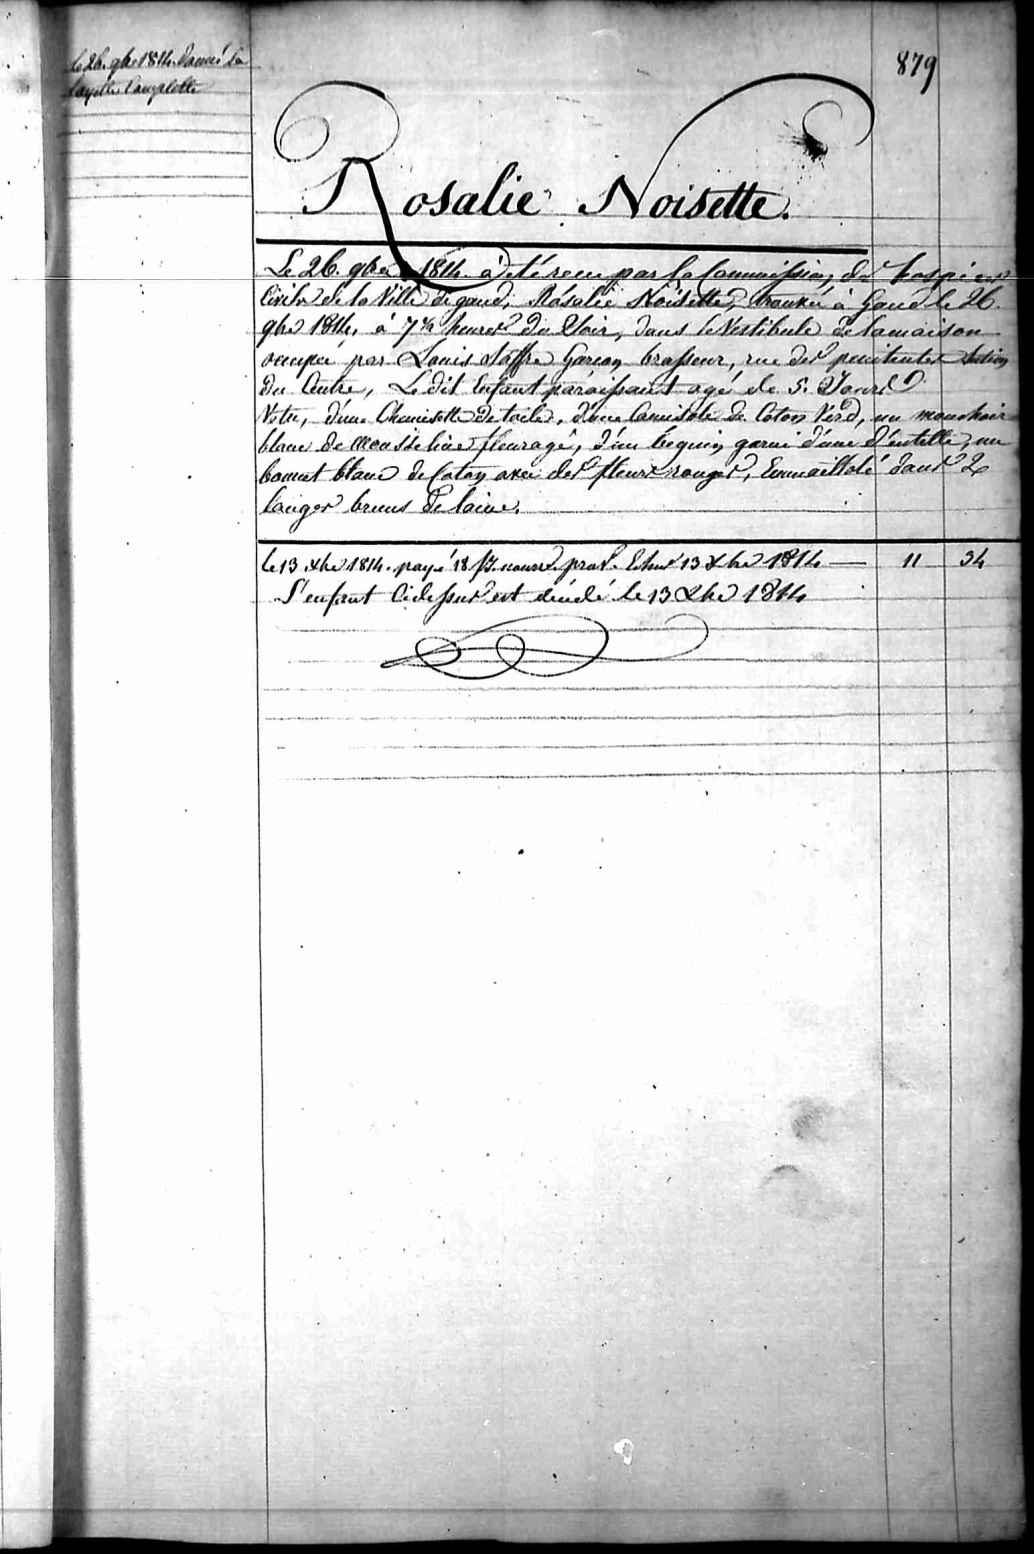 879
le 26. 9bre 1814. Donné la
Layette Complette
Rosalie Noisette.
Le 26. 9bre 1814. à été recue par la Commission des hospices
Civils de la Ville de gand, Rosalie Noisette, trouvée à Gand le 26.
9bre 1814, à 7 ½ heures du Soir, dans le Vestibule de la maison
occupée par Louis Staffre Garçon brasseur, rue des penitentes Section
du Centre, Le dit Enfant paraissant agé de 5. Jours
Vetu, d'une Chemisette de toile, d'une Camisole de Coton Verd, un mouchoir
blanc de mousseline fleuragé, d'un beguin garni d'une d'entelle, un
bonnet blanc de Coton avec des fleurs rouges, Emmailloté dans 2
langes bruns de laine.
le 13 Xbre 1814. payé 18 jrs. nourre. prove. Echus 13 Xbre 1814 — 11 34
L'enfant Cidessus est décédé le 13 Xbre 1814